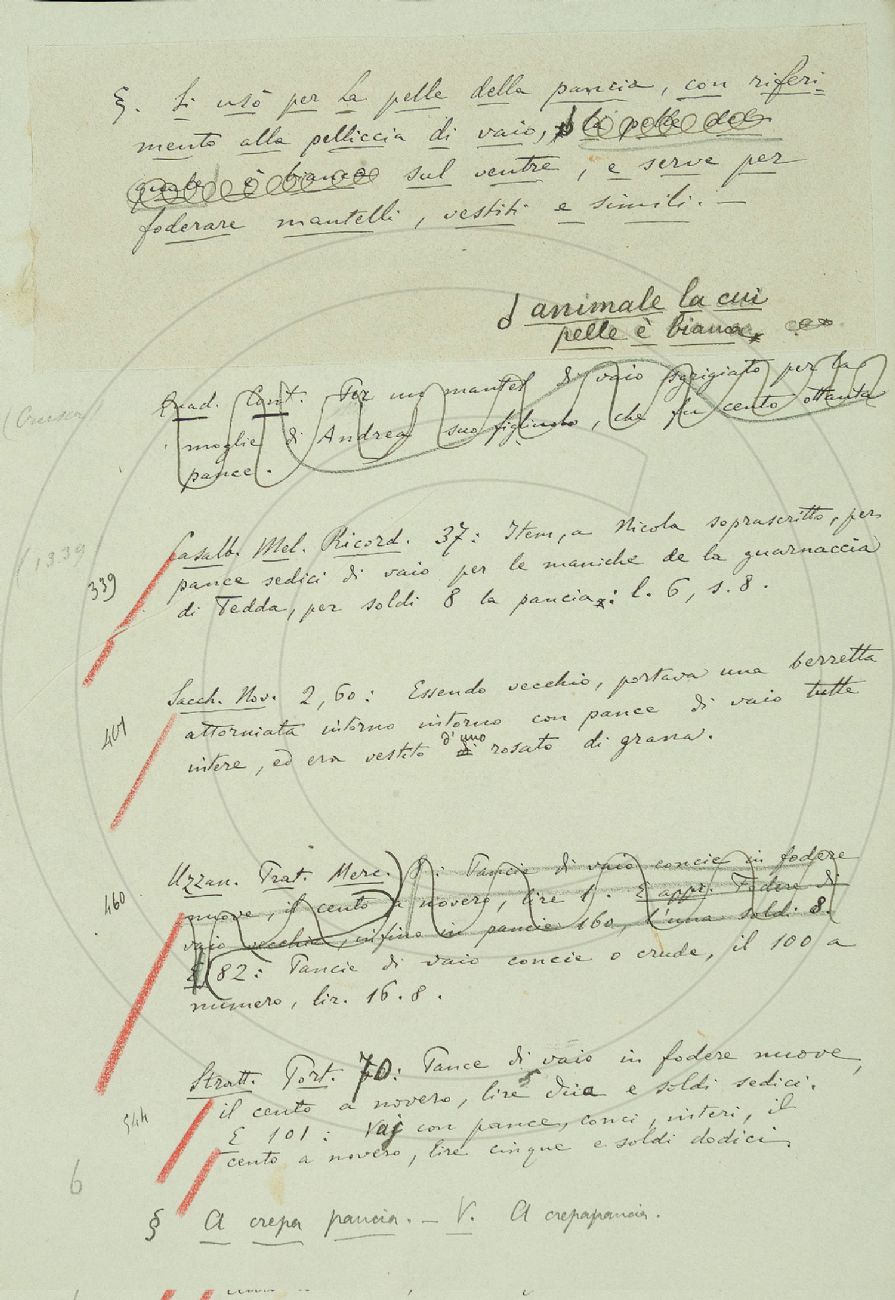 §. Si usò per la pelle della pancia, con riferi-
mento alla pelliccia di vaio, la pelle del
quale è bianca sul ventre, e serve per
foderare mantelli, vestiti e simili. —
animale la cui
pelle è bianca
Quad. Cont. Per un mantel di vaio sgrigiato per la
moglie di Andrea suo figliuolo, che fu cento ottanta
pance.
(1339
339
Casalb. Mel. Ricord. 37: Item, a Nicola soprascritto, per
pance sedici di vaio per le maniche de la guarnaccia
di Tedda, per soldi 8 la pancia: l. 6, s. 8.
401
Sacch. Nov. 2, 60: Essendo vecchio, portava una berretta
attorniata intorno intorno con pance di vaio tutte
intere, ed era vestito d'uno rosato di grana.
460
Uzzan. Trat. Merc. 8: Pancie di vaio concie in fodere
nuove, il cento a novero, lire 1. E appr. Fodere di
vaio vecchie, infino in pancie 160, l'una soldi 8.
E 82: Pancie di vaio concie o crude, il 100 a
numero, lir. 16. 8.
544
Stratt. Port. 70: Pance di vaio in fodere nuove,
il cento a novero, lire dua e soldi sedici.
E 101: Vaj con pance, conci, interi, il
cento a novero, lire cinque e soldi dodici
6
§ A crepa pancia. — V. A crepapancia.